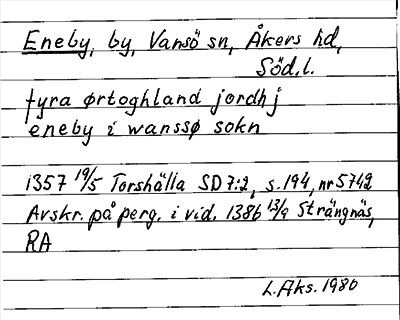 Eneby, by, Vansö sn, Åkers hd,
Söd.l.
fyra ørtoghland jordh j
eneby i wanssø sokn
1357 19/5 Torshälla SD 7:2, s. 194, nr 5742
Avskr. på perg. i vid. 1386 13/9 Strängnäs,
RA
L.Aks. 1980